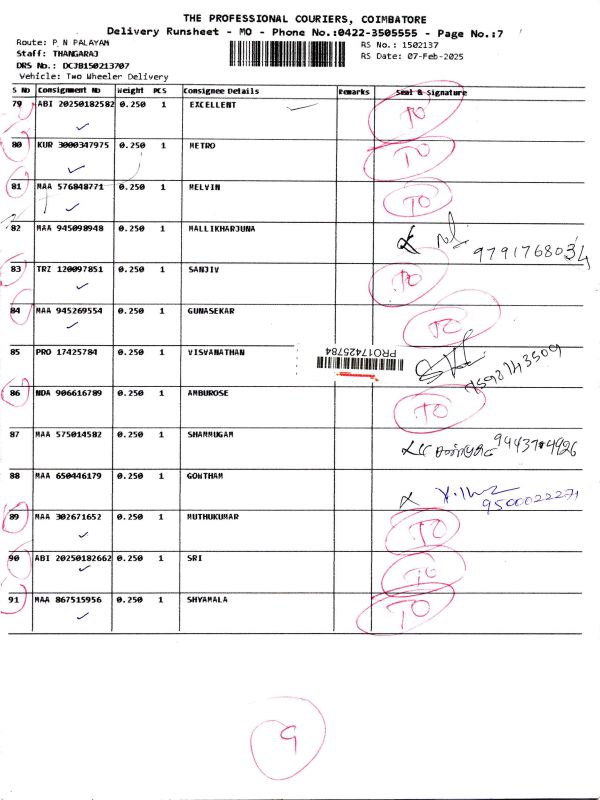 THE PROFESSIONAL COURIERS, COIMBATORE
Delivery Runsheet - MO - Phone No.:0422-3505555 - Page No.:7
Route: P N PALAYAM
RS No.: 1502137
Staff: THANGARAJ
RS Date: 07-Feb-2025
DRS No.: DCJB150213707
Vehicle: Two Wheeler Delivery
S No Consignment No Weight PCS Consignee Details Remarks Seal & Signature
79 ABI 20250182582 0.250 1 EXCELLENT TO
80 KUR 3000347975 0.250 1 METRO TO
81 MAA 576848771 0.250 1 MELVIN TO
82 MAA 945098948 0.250 1 MALLIKHARJUNA
9791768034
83 TRZ 120097851 0.250 1 SANJIV TO
84 MAA 945269554 0.250 1 GUNASEKAR TO
85 PRO 17425784 0.250 1 VISVANATHAN PRO17425784
86 NDA 906616789 0.250 1 AMBUROSE TO
87 MAA 575014582 0.250 1 SHANMUGAM
88 MAA 650446179 0.250 1 GOWTHAM
9500022271
89 MAA 302671652 0.250 1 MUTHUKUMAR TO
90 ABI 20250182662 0.250 1 SRI TO
91 MAA 867515956 0.250 1 SHYAMALA TO
9